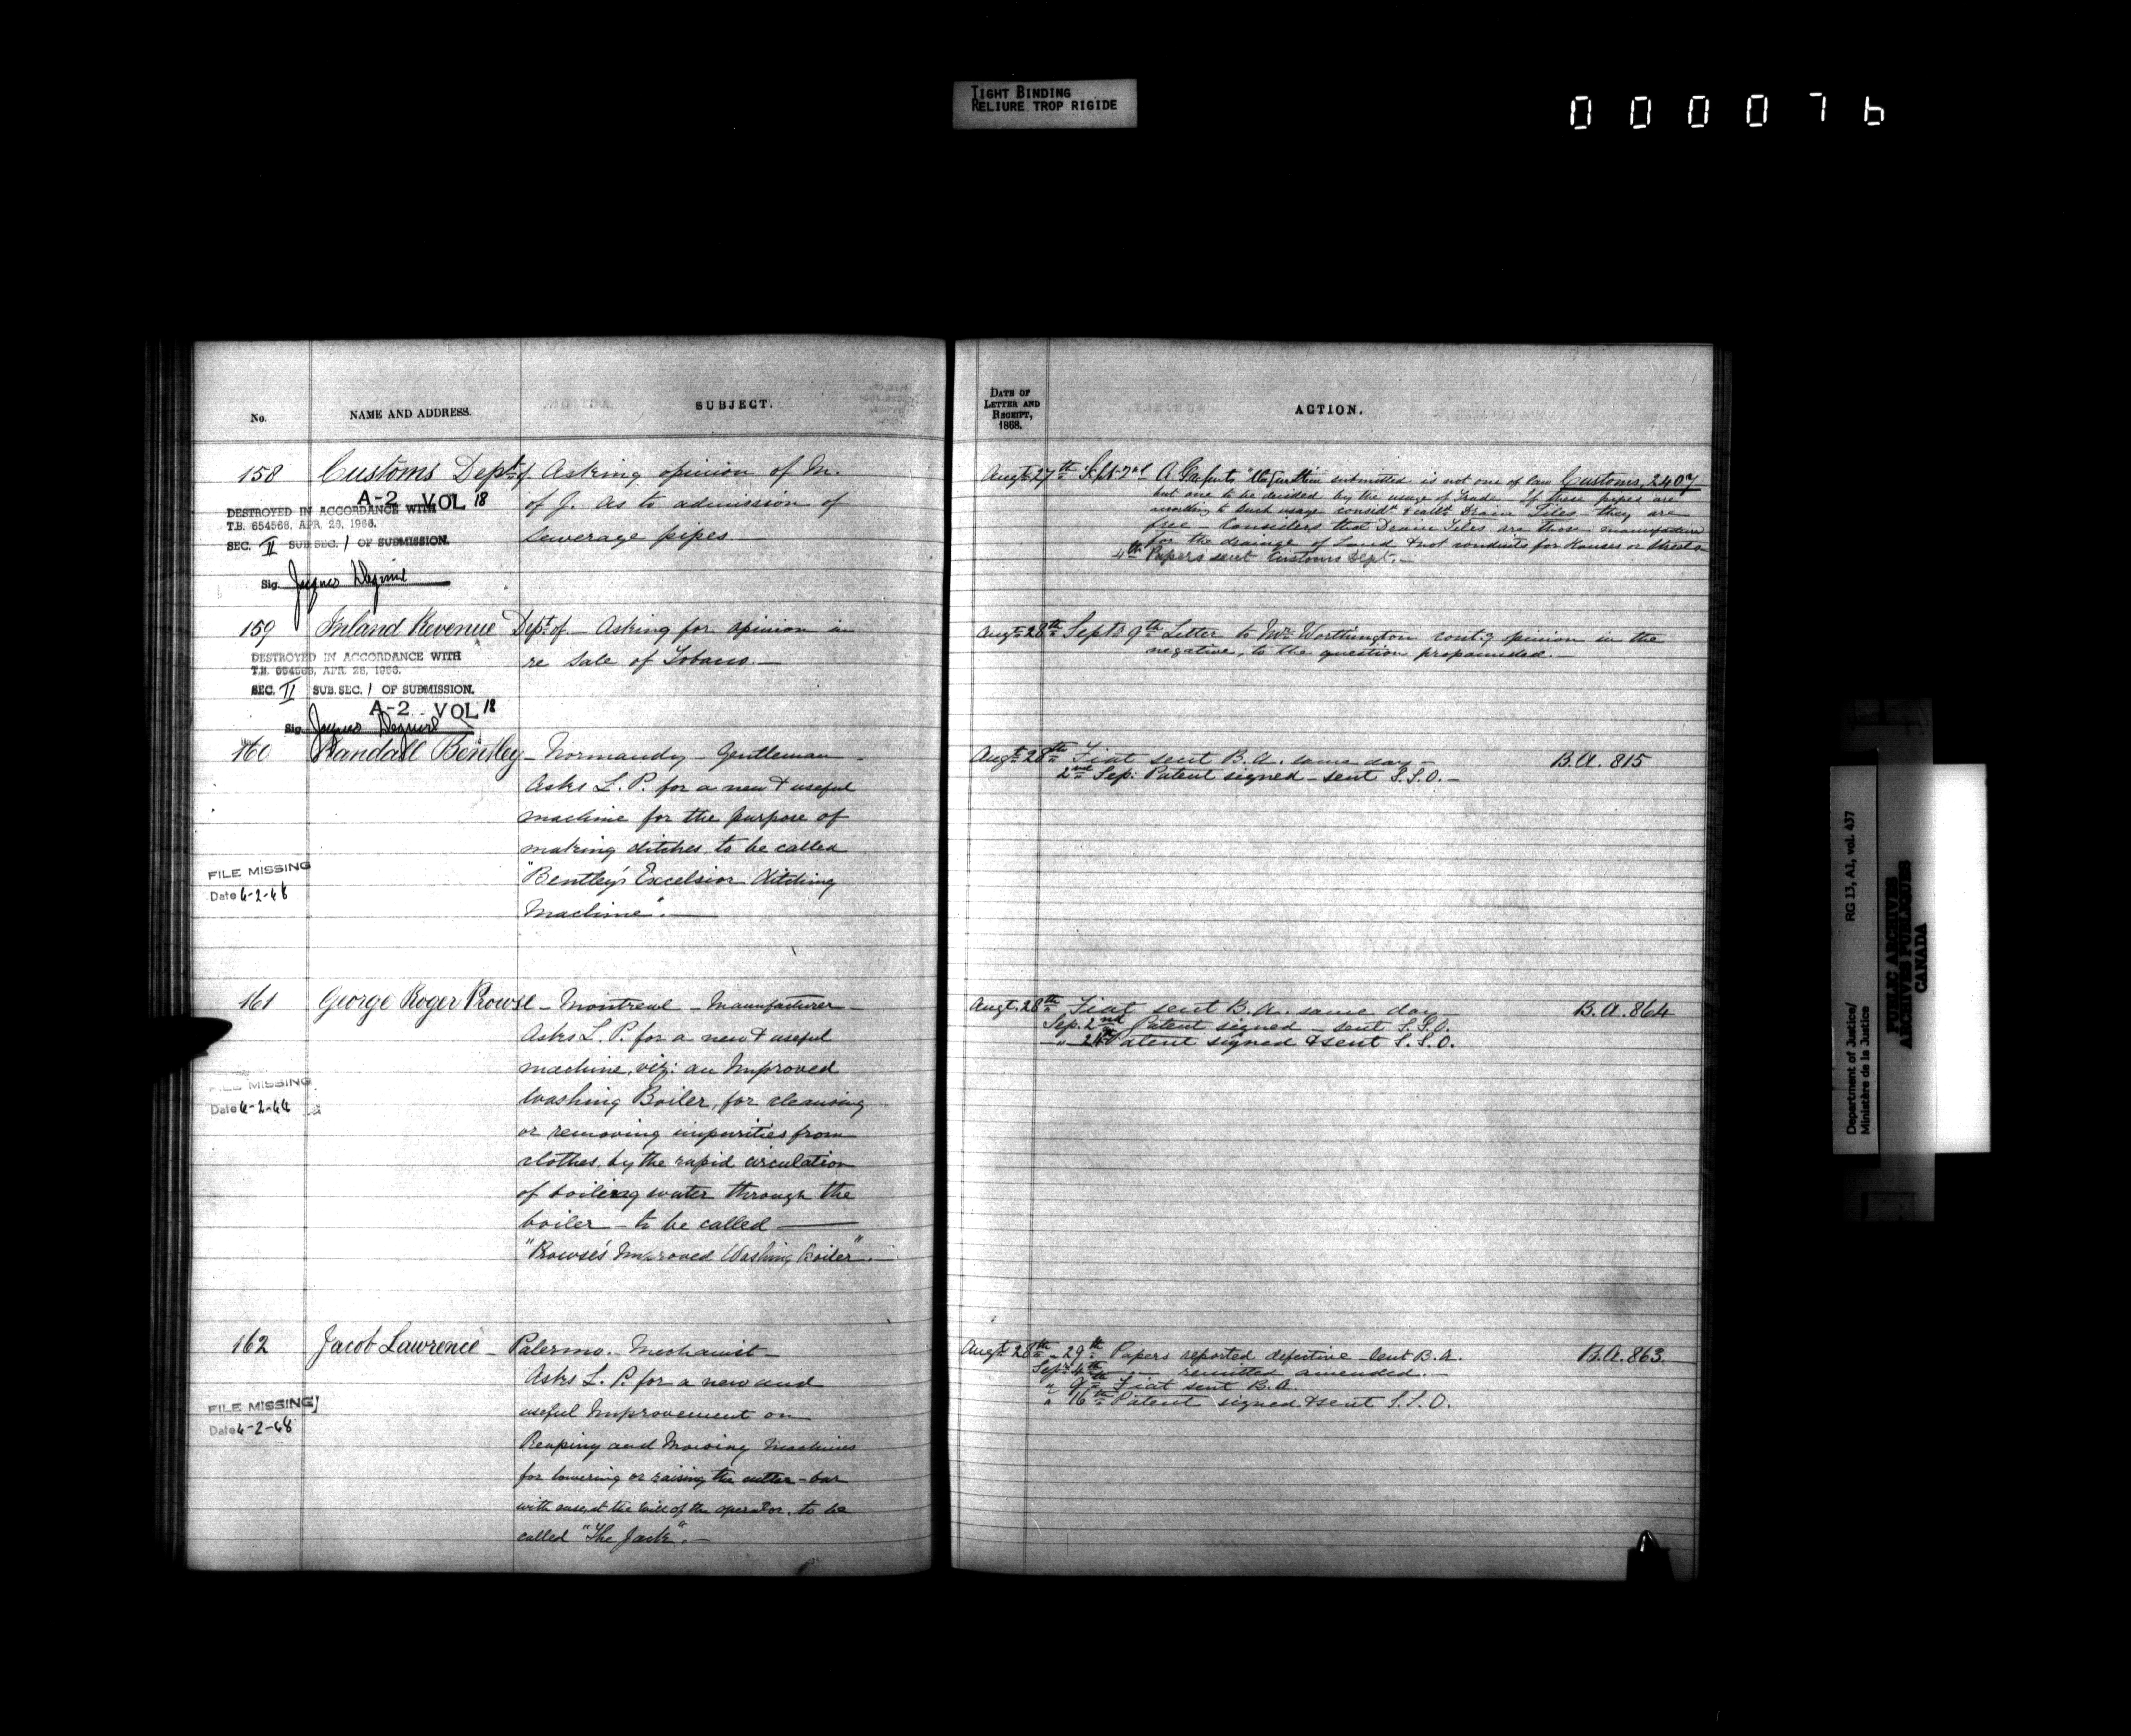 TIGHT BINDING
RELIURE TROP RIGIDE
000076
No.
NAME AND ADDRESS.
SUBJECT.
158 Customs Dept of Asking opinion of M.
of J. as to admission of
Sewerage pipes. —
A-2 VOL 18
DESTROYED IN ACCORDANCE WITH
T.B. 654568, APR. 28, 1966.
SEC. II SUB.SEC. 1 OF SUBMISSION.
Sig. Jacques
159 Inland Revenue Dept of. — Asking for opinion in
re Sale of Tobacco. —
DESTROYED IN ACCORDANCE WITH
T.B. 654568, APR. 28, 1966.
SEC. II SUB.SEC. 1 OF SUBMISSION.
A-2 VOL 18
Sig. Jacques
160 Randall Bentley — Normandy — Gentleman —
Asks L. P. for a new & useful
machine for the purpose of
making ditches, to be called
"Bentley's Excelsior Ditching
Machine". —
FILE MISSING
Date 6-2-68
161 George Roger Prowse — Montreal — Manufacturer —
Asks L. P. for a new & useful
machine, viz: an Improved
Washing Boiler, for cleansing
or removing impurities from
clothes, by the rapid circulation
of boiling water through the
boiler — to be called —
"Prowse's Improved Washing Boiler". —
FILE MISSING
Date
162 Jacob Lawrence — Palermo. — Mechanist —
Asks L. P. for a new and
useful Improvement on
Reaping and Mowing Machines
for lowering or raising the cutter-bar
with ease, at the will of the operator, to be
called "The Jack". —
FILE MISSING
Date 6-2-68
DATE OF
LETTER AND
RECEIPT,
1868.
ACTION.
Augt 27th Sept 2nd A G reports "the question submitted is not one of law Customs, 2407
but one to be decided by the usage of Trade. If these pipes are
according to such usage considd & calld Drain Tiles they are
free — Considers that Drain Tiles are those manufactured
for the drainage of Land & not conduits for Houses or Streets
4th Papers sent Customs Dept. —
Augt 28th Sept 9th Letter to Mr Worthington contg opinion in the
negative, to the question propounded. —
Augt 28th Fiat sent B. A. same day — B.A. 815
2nd Sep: Patent signed — sent S.S.O. —
Augt 28th Fiat sent B. A. same day — B.A. 864
Sep. 2nd Patent signed — sent S.S.O.
" 24th Patent signed & sent S.S.O.
Augt 28th — 29th Papers reported defective sent B.A. B.A. 863.
Sept 4th — " — remitted amended. —
" 9th Fiat sent B.A.
" 16th Patent signed & sent S.S.O.
Department of Justice/
Ministère de la Justice
RG 13, A1, vol. 437
PUBLIC ARCHIVES
ARCHIVES PUBLIQUES
CANADA